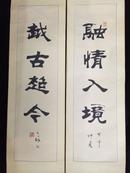 融情入境
越古超今